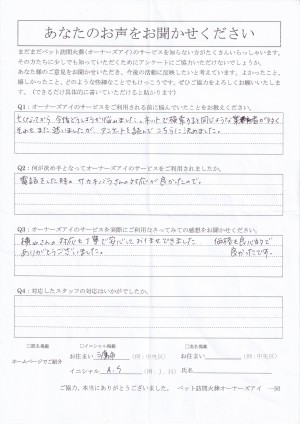 あなたのお声をお聞かせください
まだまだペット訪問火葬(オーナーズアイ)のサービスを知らない方がたくさんいらっしゃいます。
その方たちに少しでも知っていただくためにアンケートにご協力いただけないでしょうか。
あなた様のご意見をお聞かせいただき、今後の活動に反映したいと考えています。よかったこと、
嬉しかったこと、どのような些細なことでもけっこうです。ぜひご協力をよろしくお願いいたします。
(できるだけ具体的に書いていただけると助かります)
Q1:オーナーズアイのサービスをご利用される前に悩んでいたことをお教えください。
ネットで検索すると同じような業者が多く
アンケートを読んでこちらに決めました。
Q2:何が決め手となってオーナーズアイのサービスをご利用されましたか。
電話をした時の サカキバラさんの対応が
良かったので。
Q3:オーナーズアイのサービスを実際にご利用なさってみての感想をお聞かせください。
対応も丁寧で安心しておまかせできました 価格も
ありがとうございました。 良かったです。
Q4:対応したスタッフの対応はいかがでしたか。
□匿名掲載 □イニシャル掲載 □氏名掲載
お住まい (例:中央区) お住まい (例:中央区)
ホームページでご紹介
イニシャル A.S (例:J.H) 氏名
ご協力、本当にありがとうございました。 ペット訪問火葬オーナーズアイ 一同